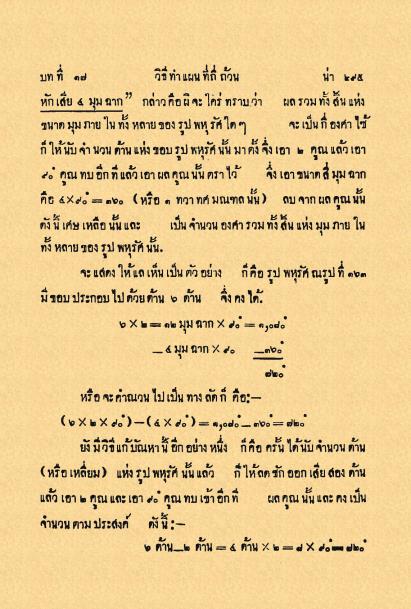 บทที่ ๑๗ วิธีทำแผนที่ถี่ถ้วน น่า ๒๙๕
หักเสีย ๔ มุมฉาก” กล่าวคือผิจะใคร่ทราบว่า ผลรวมทั้งสิ้นแห่ง
ขนาดมุมภายในทั้งหลายของรูปพหุรัศใดๆ จะเป็นกี่องศาไซ้
ก็ให้นับจำนวนด้านแห่งขอบรูปพหุรัศนั้นมาตั้งจึ่งเอา ๒ คูณแล้วเอา
๙๐° คูณทบอีกทีแล้วเอาผลคูณนั้นตราไว้ จึ่งเอาขนาดสี่มุมฉาก
คือ ๔×๙๐°=๓๖๐° (หรือ ๑ ทวาทศมณฑลนั้น) ลบจากผลคูณนั้น
ดังนี้เศษเหลือนั้นและ เป็นจำนวนองศารวมทั้งสิ้นแห่งมุมภายใน
ทั้งหลายของรูปพหุรัศนั้น.
จะแสดงให้แลเห็นเป็นตัวอย่าง ก็คือรูปพหุรัศณรูปที่ ๑๖๓
มีขอบประกอบไปด้วยด้าน ๖ ด้าน จึ่งคงได้.
๖×๒=๑๒ มุมฉาก×๙๐°=๑,๐๘๐°
—๔ มุมฉาก×๙๐ —๓๖๐°
๗๒๐°
หรือจะคำณวนไปเป็นทางลัดก็คือ:—
(๖×๒×๙๐°)—(๔×๙๐°)=๑,๐๘๐°—๓๖๐°=๗๒๐°
ยังมีวิธีแก้ปัณหานี้อีกอย่างหนึ่ง ก็คือครั้นได้นับจำนวนด้าน
(หรือเหลี่ยม) แห่งรูปพหุรัศนั้นแล้ว ก็ให้ลดชักออกเสียสองด้าน
แล้วเอา ๒ คูณและเอา ๙๐° คูณทบเข้าอีกที่ ผลคูณนั้นและคงเป็น
จำนวนตามประสงค์ ดังนี้:—
๖ ด้าน—๒ ด้าน=๔ ด้าน×๒=๘×๙๐°=๗๒๐°